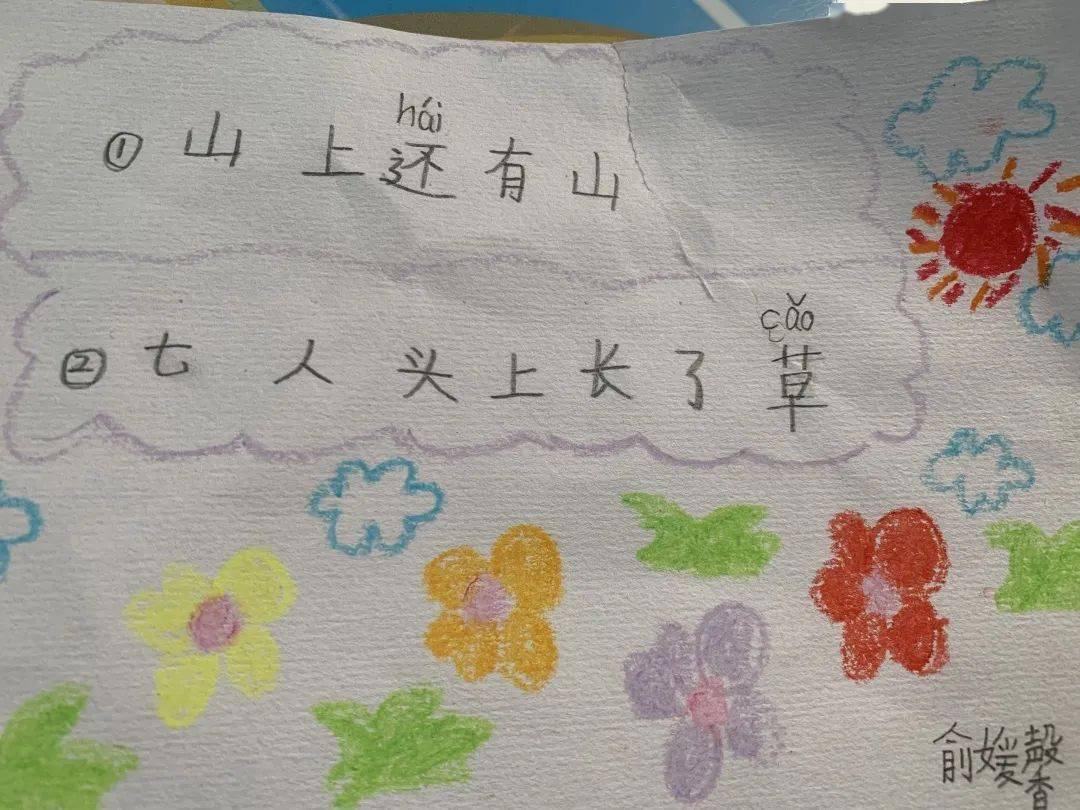 hái
①山上还有山
cǎo
②七人头上长了草
俞媛馨